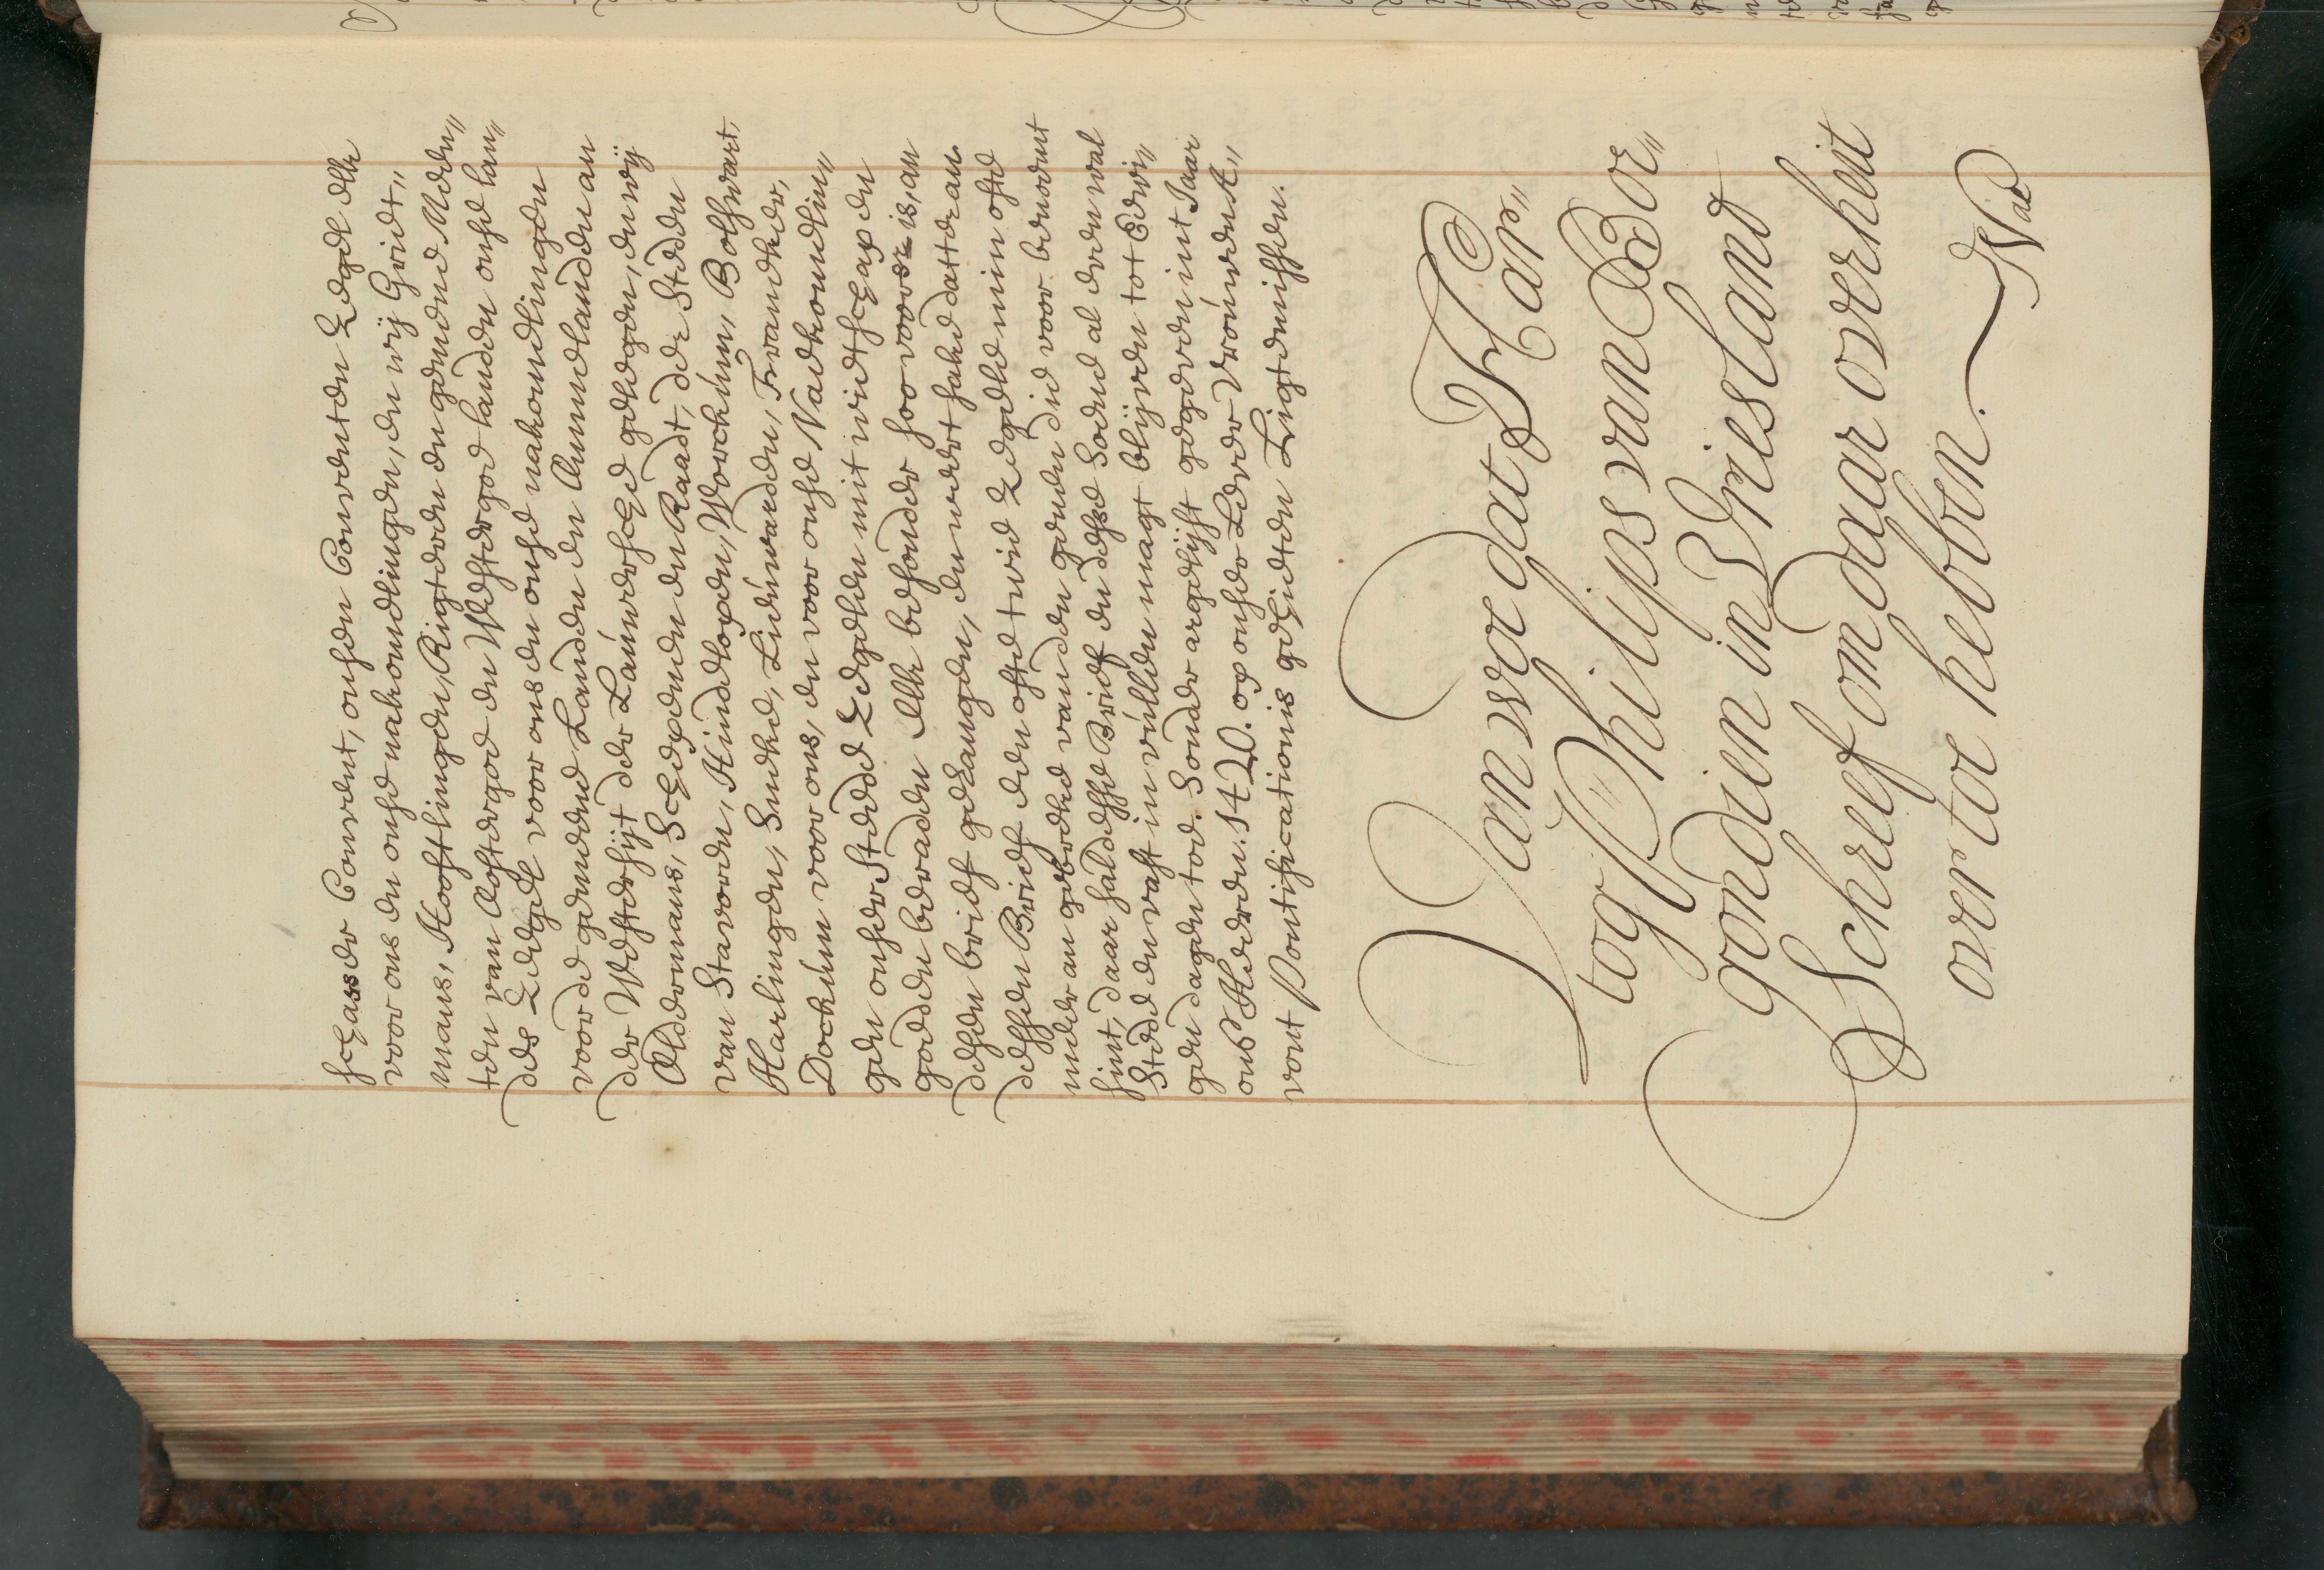 schap der Convent, onsen Conventen Zegel elk
voor ons en onse nakomelingen, en wij Griet„
mans, Hooftlingen, Rigteren en gemene Meen„
ten van Oostergoe en Westergoe landen onse lan„
des Zeegel voor ons en onse nakomelingen
voor de gemeene Landen en Ammelanden an
der Westersijt der Lauwersche gelegen, en wij
Oldermans, Schepenen en Raadt, der Steden
van Stavoren, Hindelopen, Workúm, Bolswart,
Harlingen, Sneke, Lieúwarden, Franeker,
Dockúm voor ons, en voor onse Naekomelin„
gen onser Stedde Zegelen mit wietschap en
goedden beraden elk besonder soo voorsz is, an
desen brief gehangen, en weert sake datter an
dessen Brief een ofte twie Zegele min ofte
meer an gebreke vanden genen die voor benoemt
sint, daar sal desse Brief en desse Soene al even wal
Stede en vast in vúllen magt blijven tot Eewi„
gen dagen toe. Sonder argelist gegeven int Jaar
ons Heeren. 1420. op onser Liever Vroúwen A„
vont Pontificationis geheeten Ligtmissen.
Jan svoe dat Har„
tog Philips van Bor„
gondien in Vrieslant
Schreef om daar overheit
over toe hebben.
Nae